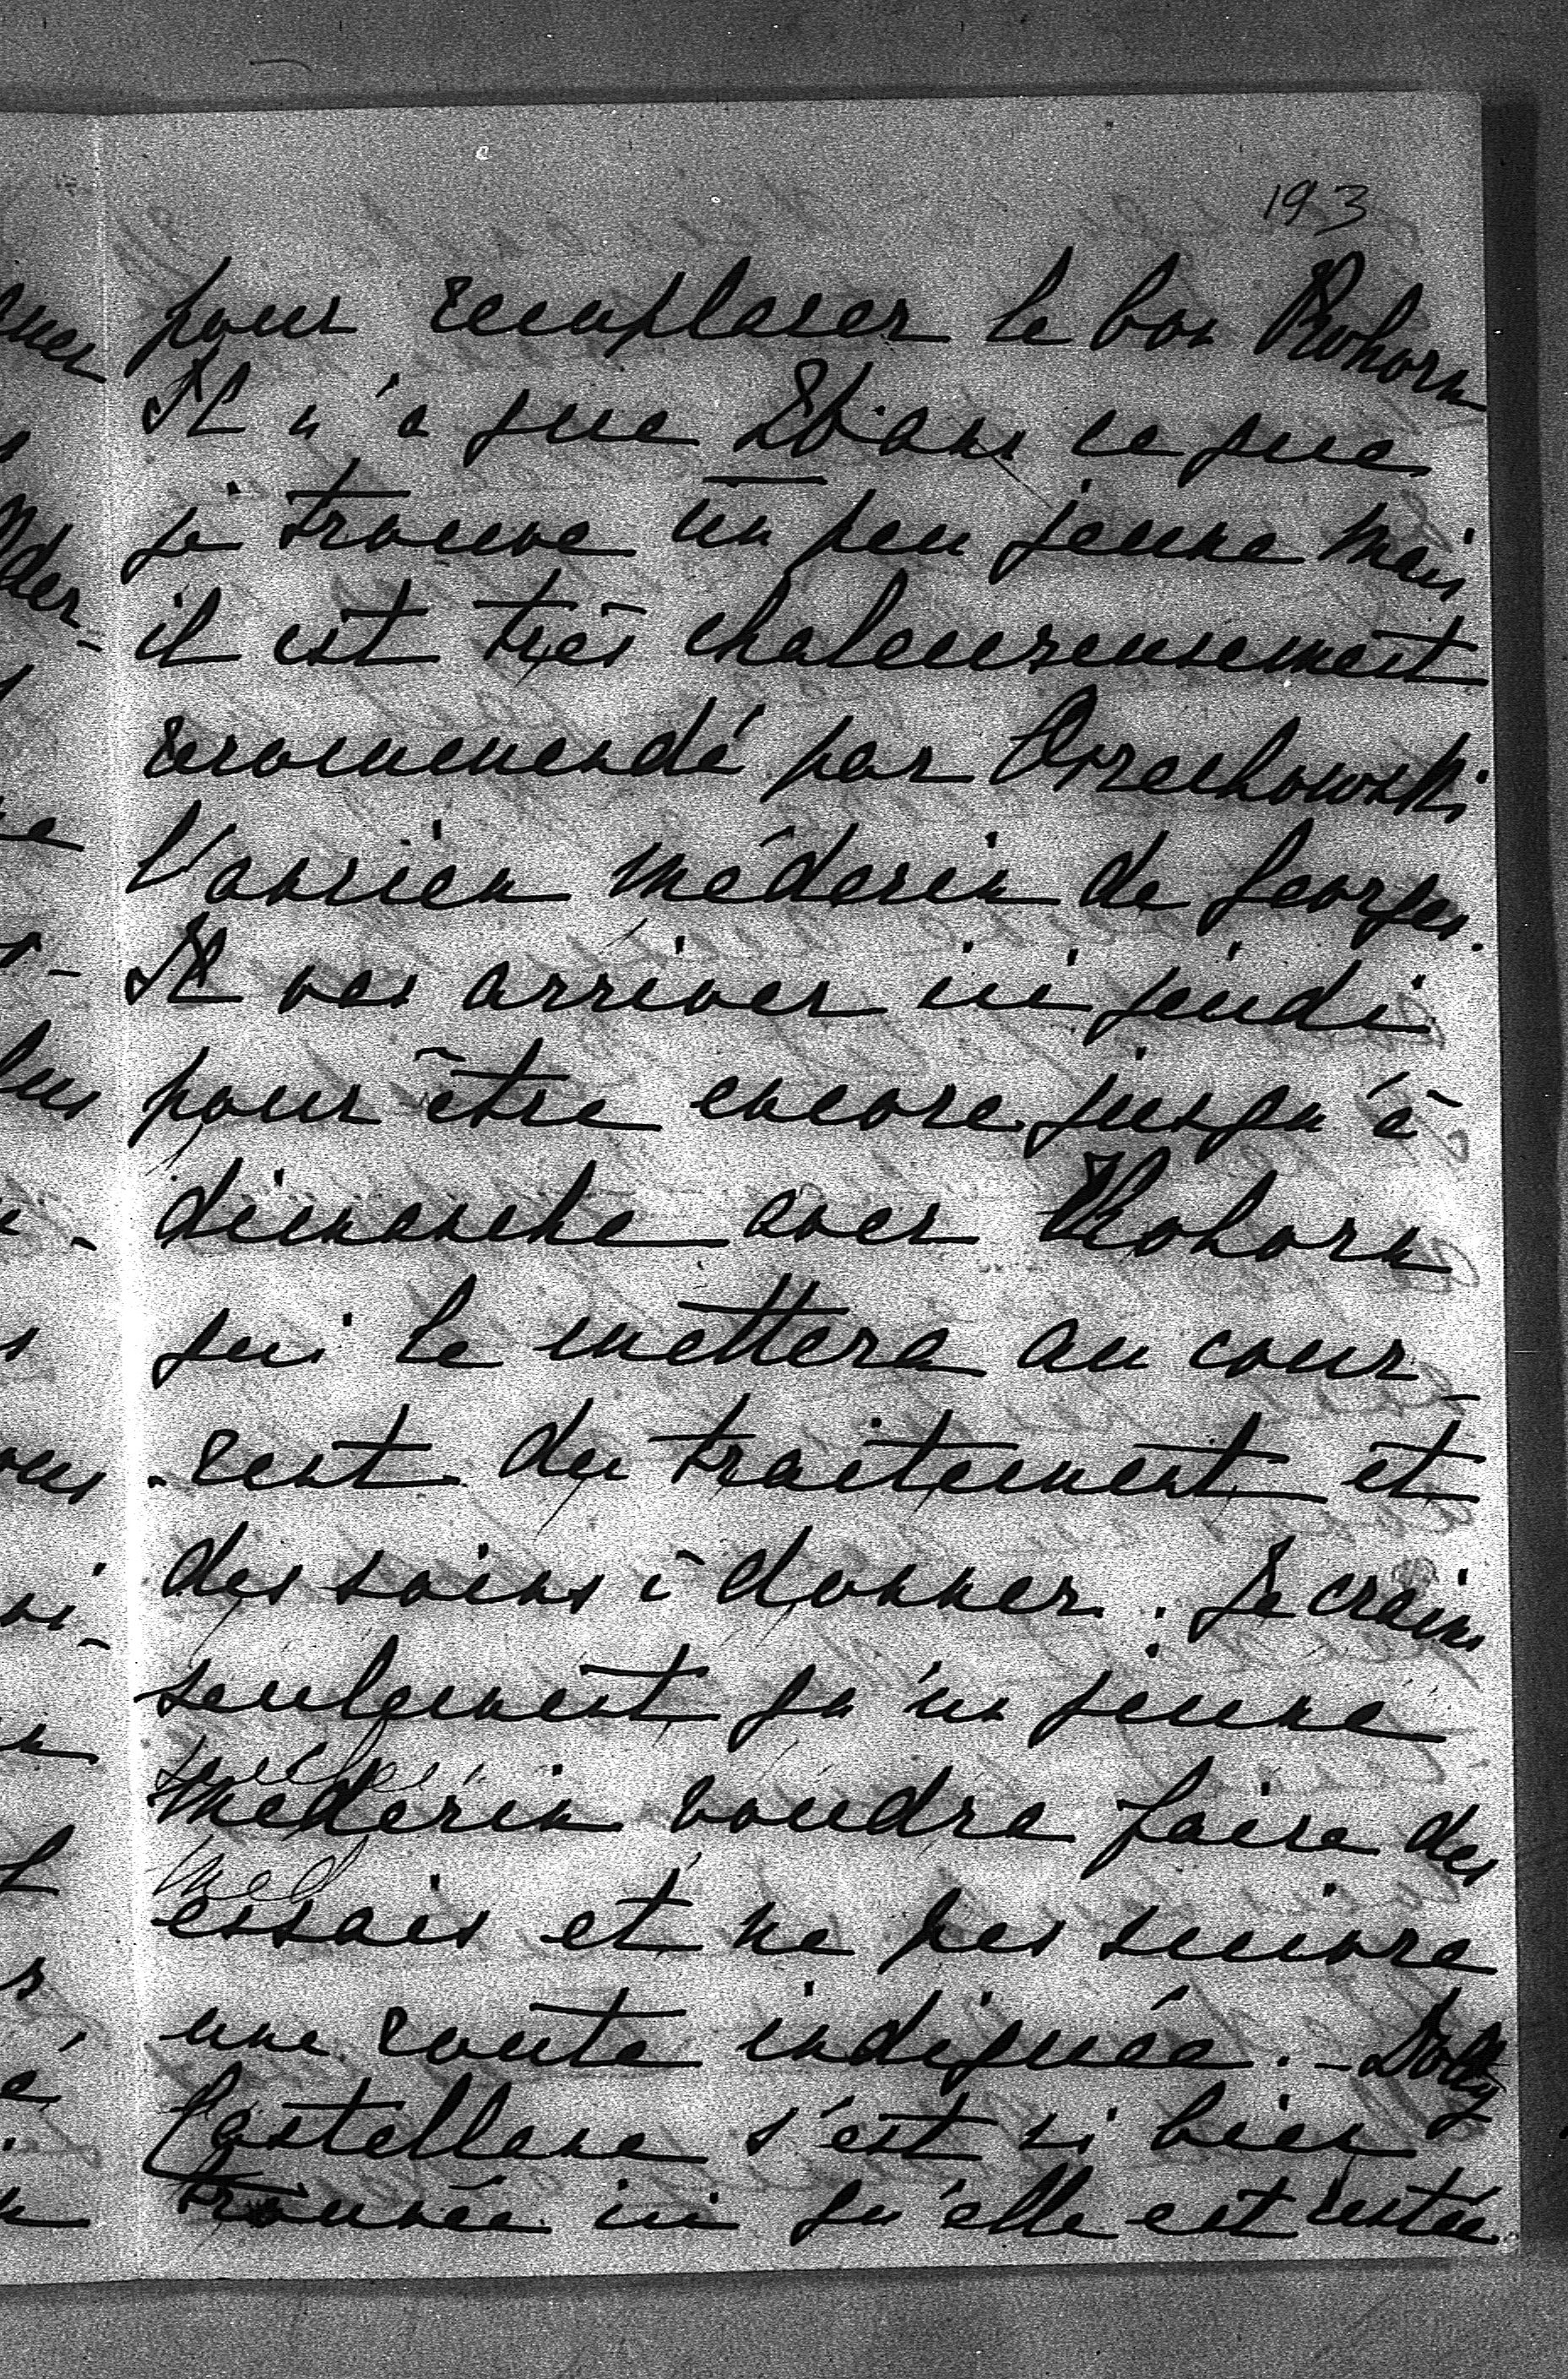 193
pour remplacer le bon Prohorn
Il n'a que 26 ans ce que
je trouve un peu jeune mais
il est très chaleureusement
recommendé par Orzechowski
l'ancien médecin de Georges.
Il va arriver ici jeudi
pour être encore jusqu'à
dimanche avec Prohorn
qui le mettera au cour-
rent du traitement et
des soins à donner. Je crains
seulement qu'un jeune
médecin voudra faire des
essais et ne pas suivre
une route indiquée. - Dolly
Castellane s'est si bien
trouvée ici qu'elle est restée